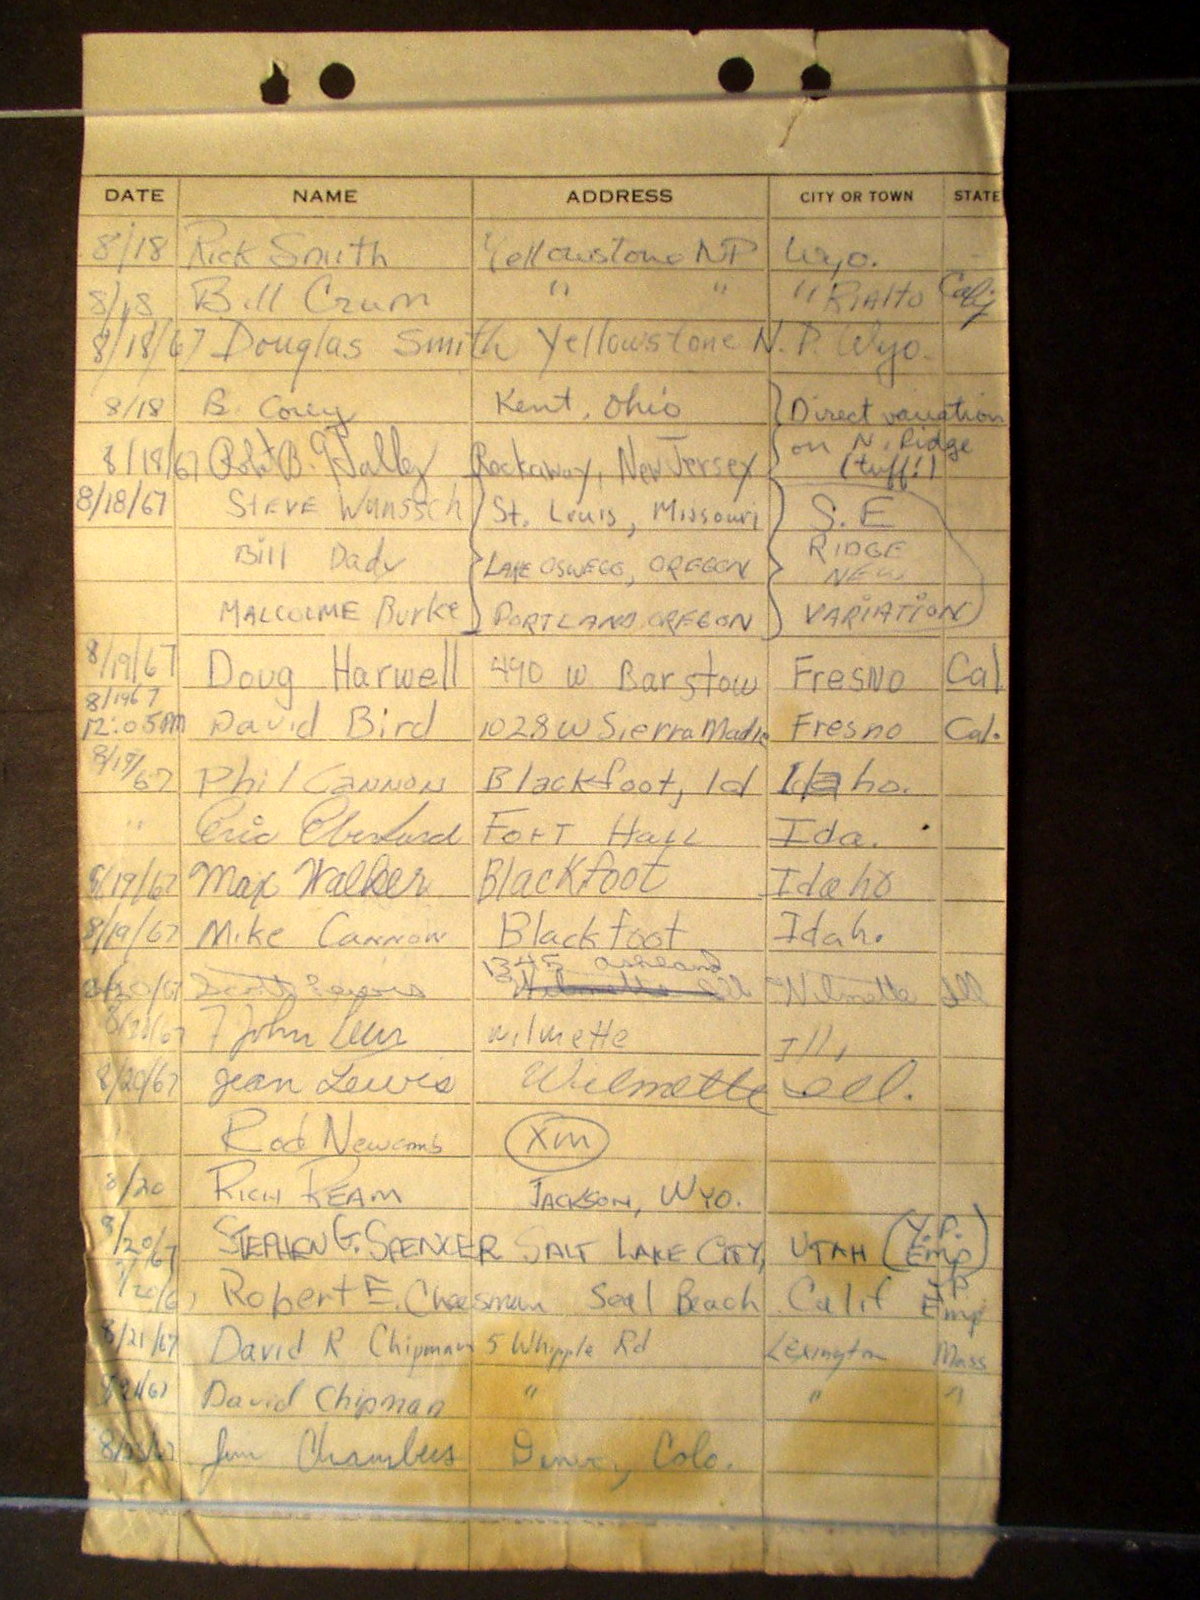 DATE NAME ADDRESS CITY OR TOWN STATE
8/18 Rick Smith Yellowstone NP Wyo.
8/18 Bill Crum " " " RIALTO Calif
8/18/67 Douglas Smith Yellowstone N.P. Wyo.
8/18 B. Corey Kent, Ohio Direct variation
on N. Ridge
8/18/67 Robt B. Rockaway, New Jersey (tuff!)
8/18/67 STEVE Wunssch St. Louis, Missouri S. E
Bill Dady LAKE OSWEGO, OREGON RIDGE
NEW
MALCOLME Burke PORTLAND, OREGON VARIATION
8/19/67 Doug Harwell 490 W. Barstow Fresno Cal
8/19 67
12:05PM David Bird 1028 W Sierra Madre Fresno Cal.
8/19/67 Phil CANNON Blackfoot, Id Idaho.
" Eric FORT HALL Ida.
8/19/67 Max Walker Blackfoot Idaho
8/19/67 Mike CANNON Blackfoot Idah.
1345 Ashland
8/20/67 Scott Lewis Wilmette Ill Wilmette Ill
8/20/67 John Lewis Wilmette Ill,
8/20/67 Jean Lewis Wilmette Ill.
Rod Newcomb XM
8/20 RICH REAM JACKSON, WYO.
8/20/67 STEPHEN G. SPENCER SALT LAKE CITY, UTAH (Y.P. Emp)
8/20/67 Robert E. Cheesman Seal Beach Calif YP Emp
8/21/67 David R Chipman 5 Whipple Rd Lexington Mass
8/21/67 David Chipman " " "
Jim Chambers Denver, Colo.